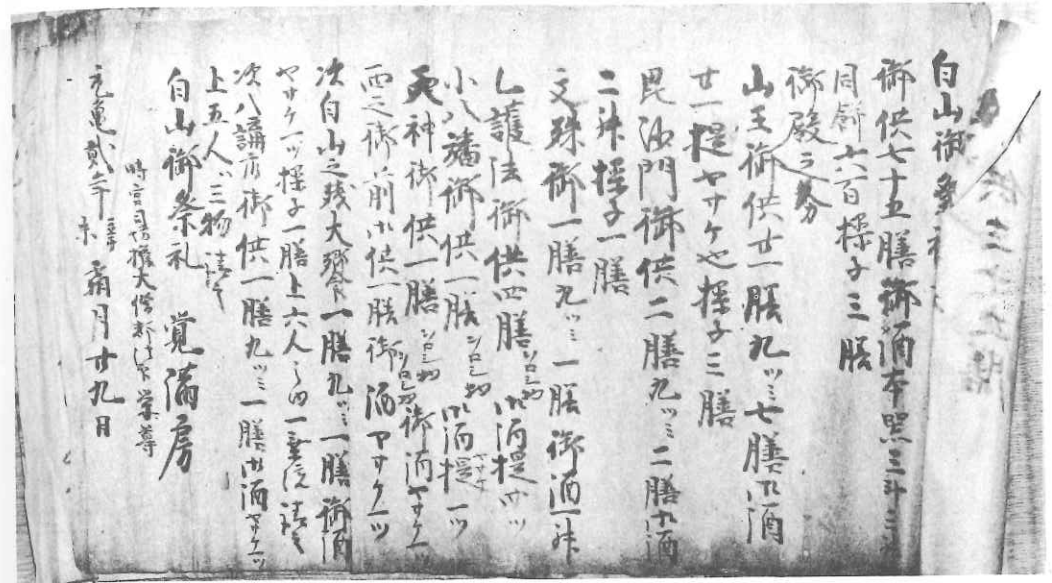 白山御祭礼
御供七十五膳御酒本器三斗三升
同餅六百操子三膳
御殿之分
山王御供廿一膳九ツミ七膳御酒
廿一提ヤサケ也操子三膳
毘沙門御供二膳九ツミ二膳御酒
二升操子一膳
文殊御一膳九ツミ一膳御酒一升
乙護法御供四膳ソロミ物御酒提ツ
小八幡御供一膳ソロミ物御酒提一ツ
天神御供一膳ソロミ物御酒ヤサケ一ツ
西之御前御供一膳御酒ヤサケ一ツ
次白山之残大飯一膳九ツミ一膳御酒
ヤサケ一ツ操子一膳上六人
次八講方御供一膳九ツミ一膳御酒ヤサケ一ツ
上五人三物
白山御祭礼 覚満房
時宮司権大僧都
元亀貳年辛未霜月廿九日